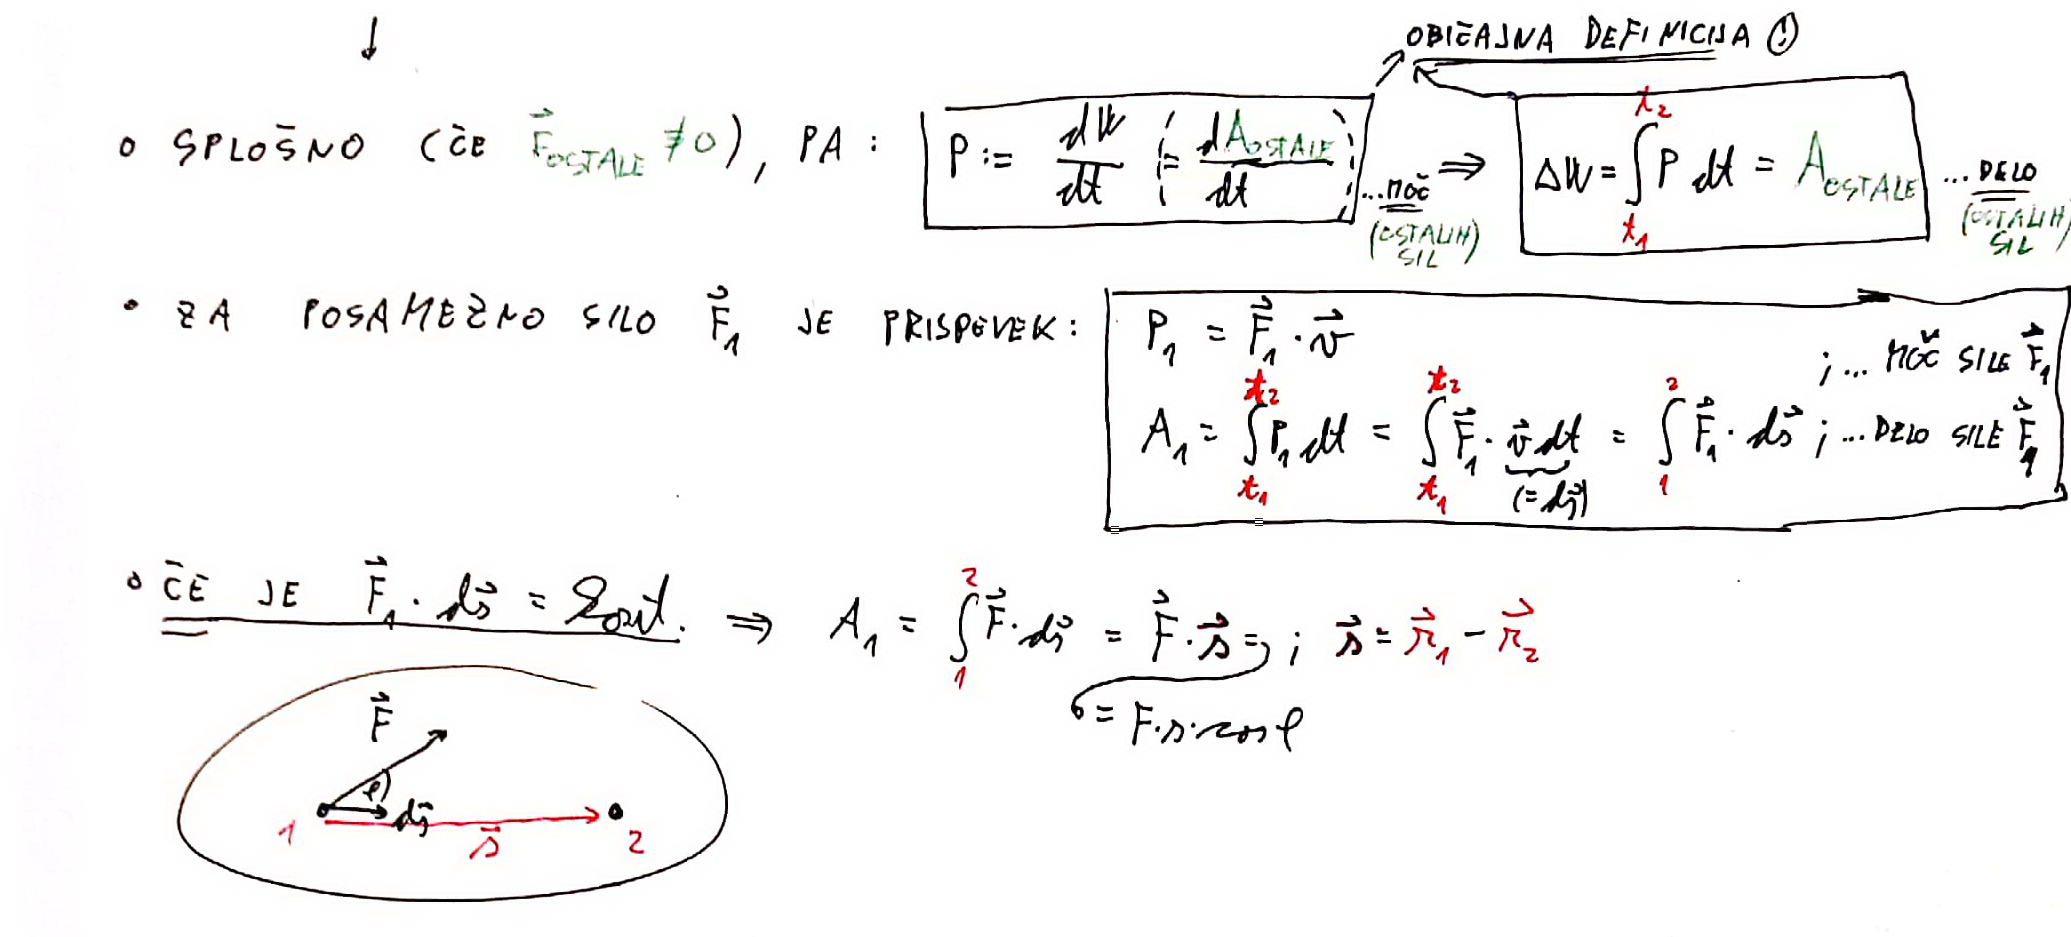 ↓
OBIČAJNA DEFINICIJA !
○ SPLOŠNO (ČE F⃗_OSTALE ≠ 0), PA : P := dW/dt (= dA_OSTALE/dt) ...MOČ (OSTALIH SIL) ⇒ ΔW = ∫_{t₁}^{t₂} P dt = A_OSTALE ...DELO (OSTALIH SIL)
• ZA POSAMEZNO SILO F⃗₁ JE PRISPEVEK : P₁ = F⃗₁ · v⃗ ;... MOČ SILE F⃗₁
A₁ = ∫_{t₁}^{t₂} P₁ dt = ∫_{t₁}^{t₂} F⃗₁ · v⃗ dt = ∫_1^2 F⃗₁ · ds⃗ ;... DELO SILE F⃗₁
(= ds⃗)
○ ČE JE F⃗₁ · ds⃗ = konst. ⇒ A₁ = ∫_1^2 F⃗ · ds⃗ = F⃗ · s⃗ = ; s⃗ = r⃗₁ - r⃗₂
= F·s·cosφ
F⃗
φ
1 ds⃗ s⃗ 2